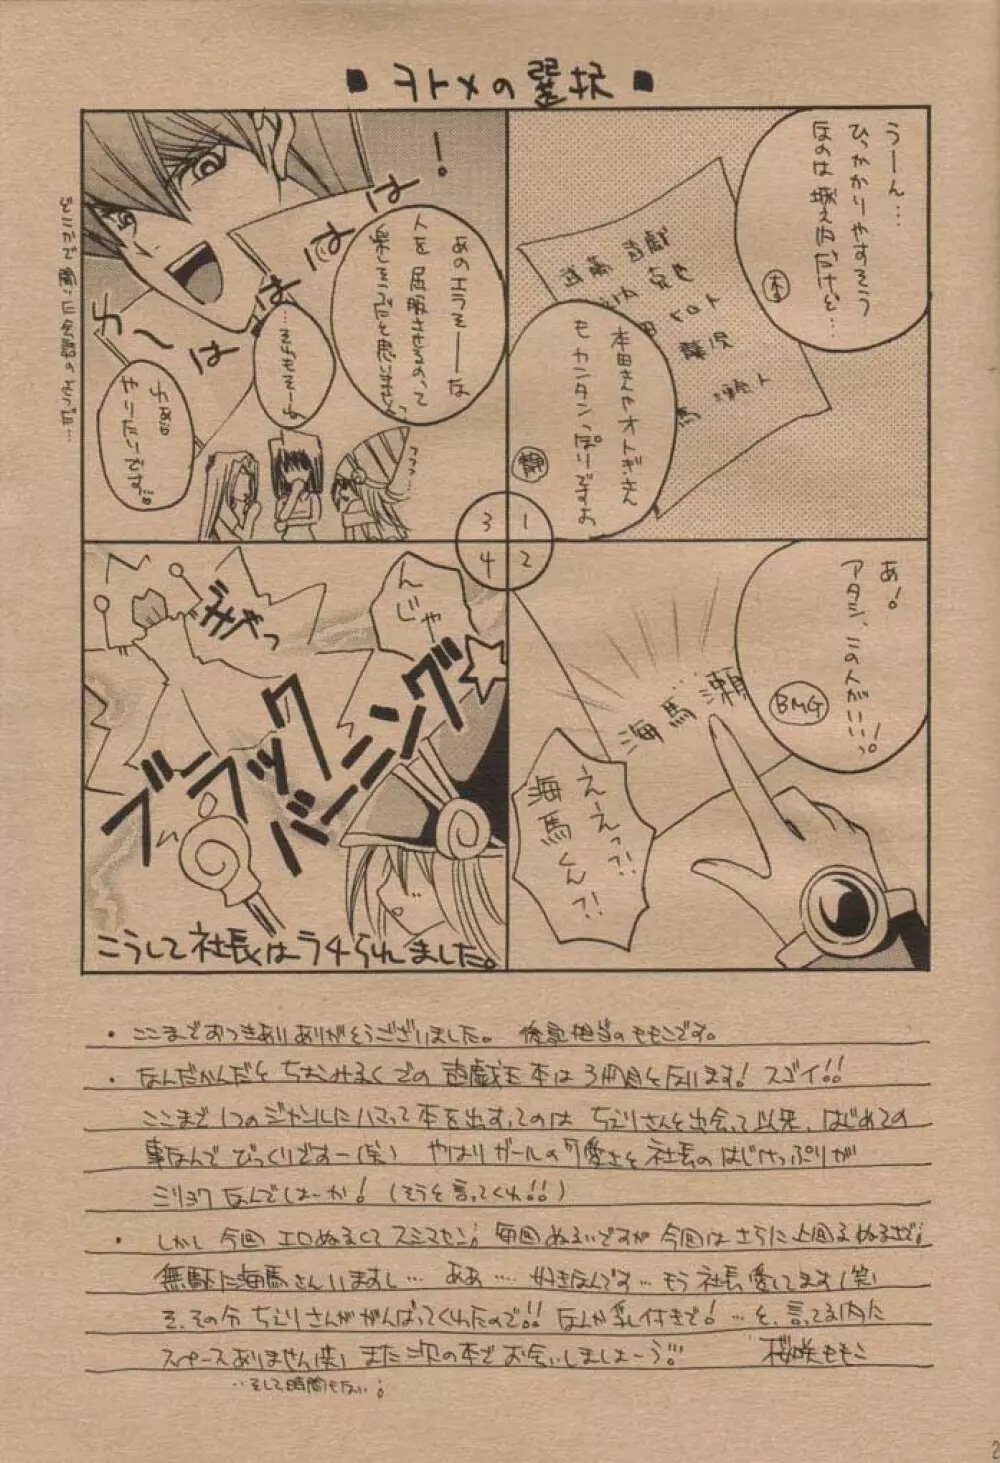 ■ ヲトメの選択 ■
うーん…
ひっかかりやすそう
なのは城之内だけど…
杏
遊戯
本田さんやオトギさん
もカンタンっぽいですよ
静
1
2
3
4
あ!
アタシ、この人がいいっ!
BMG
海馬瀬
えーえっ?!
海馬くん?!
は
は
は
!
あのエラそーな
人を屈服させるのって
楽しそうだと思いません?
…それもそーね
やりたいです。
コソコソ…
どこかで聞いた会話のようだ…
んじゃ
ブラック
バーニング
☆
こうして社長はラチられました。
・ここまでおつきあいありがとうございました。後記担当のももこです。
・なんだかんだとちぇりみるくでの遊戯王本は3冊目となります!スゴイ!!
ここまで1つのジャンルにハマって本を出すってのはちぇりさんと出会って以来、はじめての
事なんでびっくりですー(笑) やはりガールの可愛さと社長のはじけっぷりが
ミリョクなんでしょーか!(そうと言ってくれ!!)
・しかし今回エロぬるくてスミマセン; 毎回ぬるいですが今回はさらに上回るぬるさで;
無駄に海馬さんいますし… ああ…. 好きなんです…もう社長愛してます(笑)
そ、その分ちぇりさんががんばってくれたので!!なんか乳付きで!…と、言ってる内に
スペースありません(笑) また次の本でお会いしましょーう!! 桜咲ももこ
…そして時間もない;
2